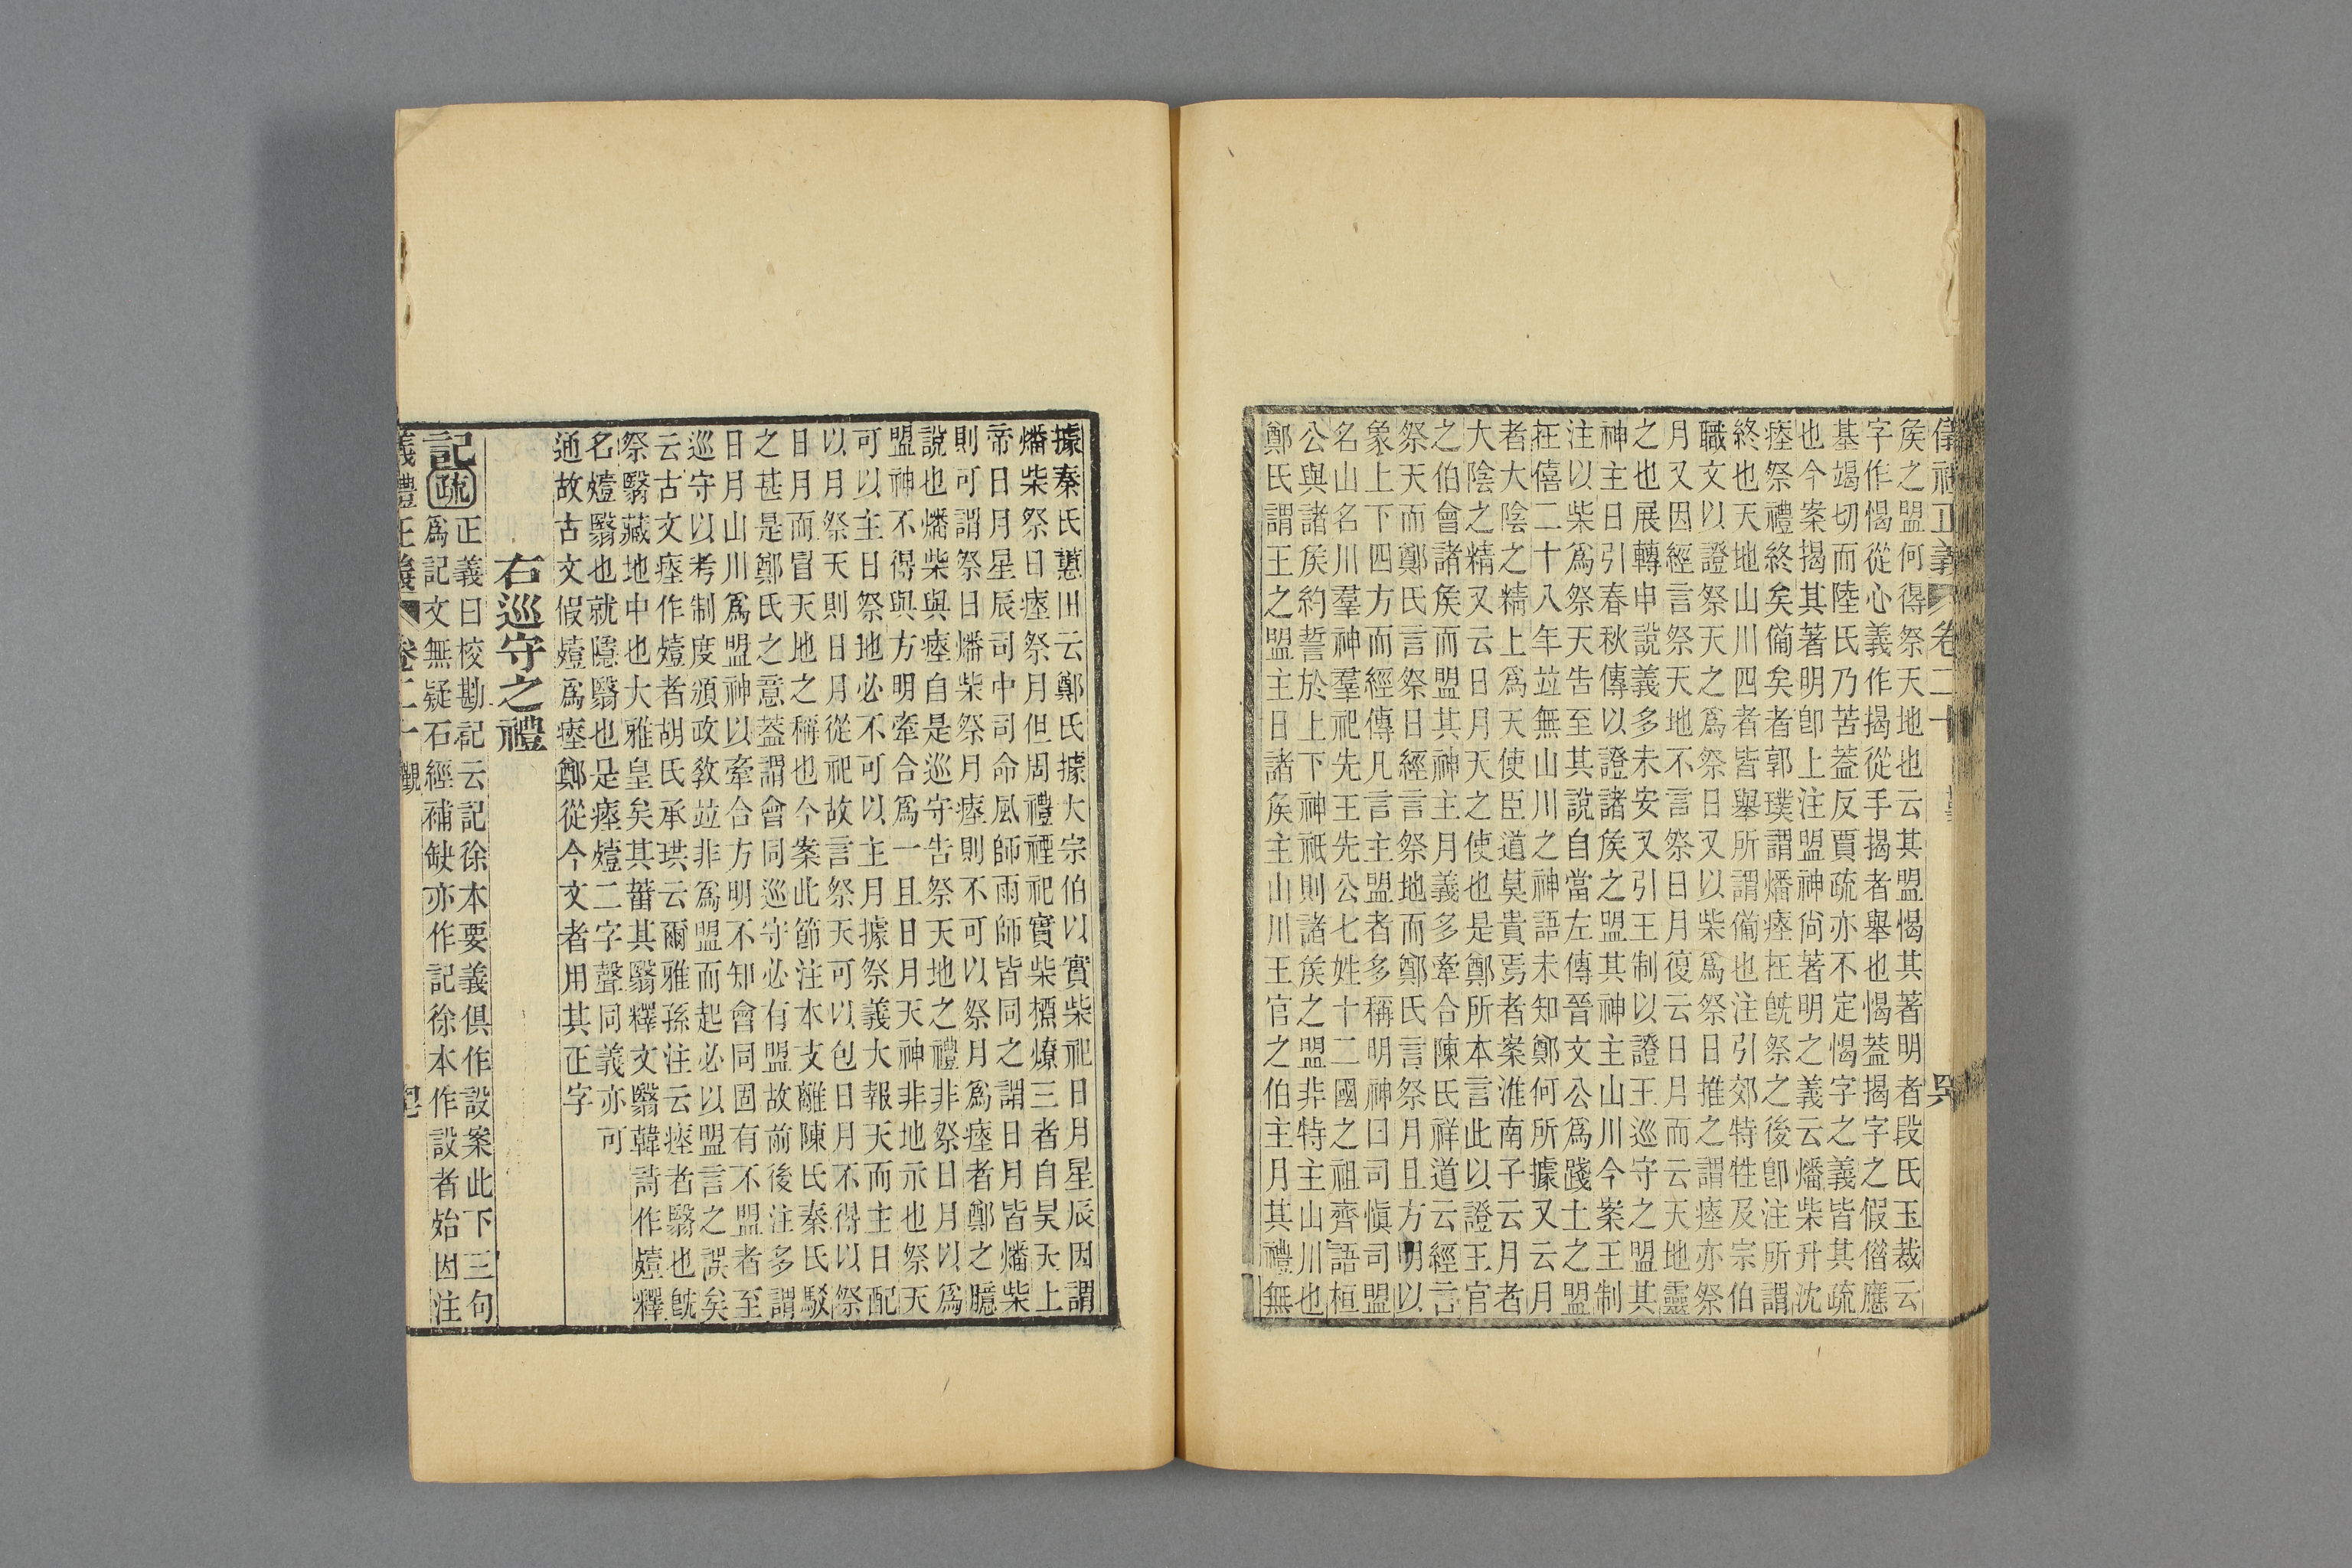 儀禮正義 卷二十
矦之盟何得祭天地也云其盟愒其著明者段氏玉裁云
字作愒從心義作揭從手揭者舉也愒蓋揭字之假借應
基竭切而陸氏乃苦蓋反賈疏亦不定愒字之義皆其疏
也今案揭其著明卽上注盟神尙著明之義云燔柴升沈
瘞祭禮終矣備矣者郭璞謂燔瘞在旣祭之後卽注所謂
終也天地山川四者皆舉所謂備也注引郊特牲及宗伯
職文以證祭天之爲祭日又以柴爲祭日推之謂瘞亦祭
月又因經言祭天地不言祭日月復云日月而云天地靈
之也展轉申說義多未安又引王制以證王巡守之盟其
神主日引春秋傳以證諸矦之盟其神主山川今案王制
注以柴爲祭天告至其說自當左傳晉文公爲踐土之盟
在僖二十八年竝無山川之神語未知鄭何所據又云月
者大陰之精上爲天使臣道莫貴焉者案淮南子云月者
大陰之精又云日月天之使也是鄭所本言此以證王官
之伯會諸矦而盟其神主月義多牽合陳氏祥道云經言
祭天而鄭氏言祭日經言祭地而鄭氏言祭月且方明以
象上下四方而經傳凡言主盟者多稱明神曰司愼司盟
名山名川羣神羣祀先王先公七姓十二國之祖齊語桓
公與諸矦約誓於上下神祇則諸矦之盟非特主山川也
鄭氏謂王之盟主日諸矦主山川王官之伯主月其禮無
據秦氏蕙田云鄭氏據大宗伯以實柴祀日月星辰因謂
燔柴祭日瘞祭月但周禮禋祀實柴槱燎三者自昊天上
帝日月星辰司中司命風師雨師皆同之謂日月皆燔柴
則可謂祭日燔柴祭月瘞則不可以祭月爲瘞者鄭之臆
說也燔柴與瘞自是巡守告祭天地之禮非祭日月以爲
盟神不得與方明牽合爲一且日月天神非地示也祭天
可以主日祭地必不可以主月據祭義大報天而主日配
以月祭天則日月從祀故言祭天可以包日月不得以祭
日月而冒天地之稱也今案此節注本支離陳氏秦氏駁
之甚是鄭氏之意蓋謂會同巡守必有盟故前後注多謂
日月山川爲盟神以牽合方明不知會同固有不盟者至
巡守以考制度頒政敎竝非爲盟而起必以盟言之誤矣
云古文瘞作殪者胡氏承珙云爾雅孫注云瘞者翳也旣
祭翳藏地中也大雅皇矣其菑其翳釋文翳韓詩作殪釋
名殪翳也就隱翳也是瘞殪二字聲同義亦可
通故古文假殪爲瘞鄭從今文者用其正字
右巡守之禮
記疏正義曰校勘記云記徐本要義俱作設案此下三句
爲記文無疑石經補缺亦作記徐本作設者始因注
義禮正義 卷二十 覲